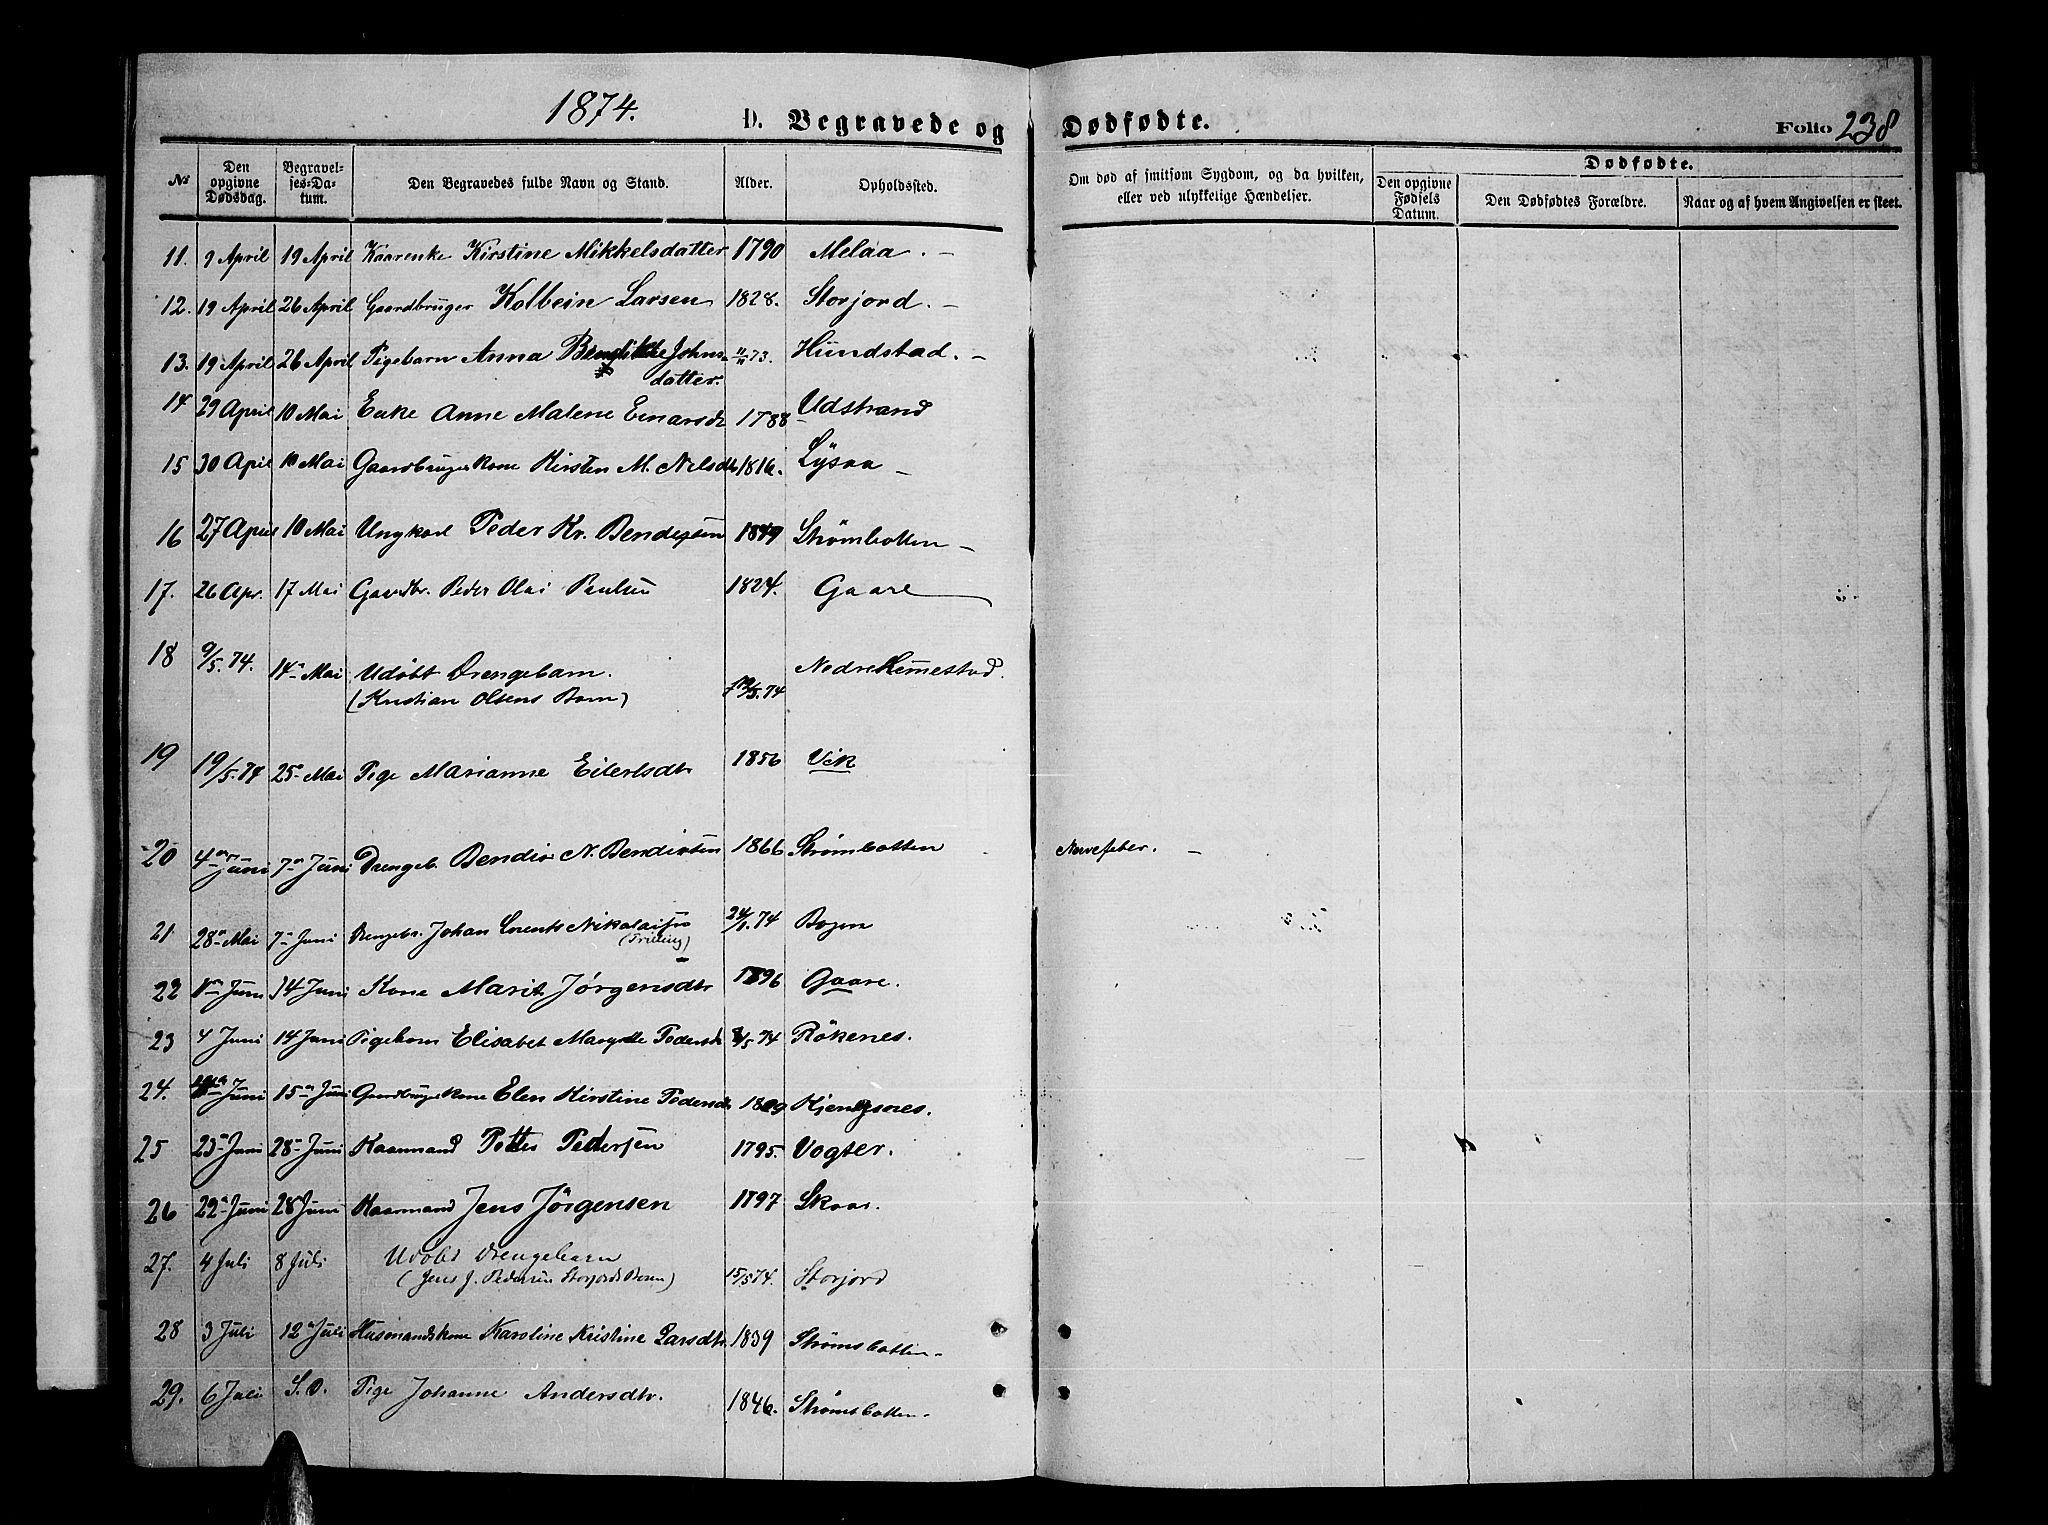 1874.
D. Begravede og Dødfødte.
Folio 238
No
Den opgivne Dødsdag.
Begravelses-Datum.
Den Begravedes fulde Navn og Stand.
Alder.
Opholdssted.
Om død af smitsom Sygdom, og da hvilken, eller ved ulykkelige Hændelser.
Den opgivne Fødsels Datum.
Dødfødte.
Den Dødfødtes Forældre.
Naar og af hvem Angivelsen er skeet.
11. 9 April 19 April Kaarenke Kirstine Mikkelsdatter 1790 Melaa. -
12. 19 April 26 April Gaardbruger Kolbein Larsen 1828. Storjord. -
13. 19 April 26 April Pigebarn Anna Bendikte Johns- 73. Hundstad. -
datter.
14 29 April 10 Mai Enke Anne Malene Einarsdt 1788 Udstrand
15 30 April 10 Mai Gaardbrugerkone Kirsten M. Nilsdtr 1816. Lysaa -
16 27 April 10 Mai Ungkarl Peder Kr. Bendigsen 1849 Strømbotten -
17. 26 Apr. 17 Mai Gaardbr. Peder Olai Paulsen 1824. Gaare
18 9/5.74. 14de Mai Udøbt Drengebarn. Nedre Kimestad.
(Kristian Olsens Barn) 5.74
19 19/5.74 25de Mai Pige Marianne Eilertsdtr 1856 Vik
20 4de Juni 7de Juni Drengeb. Bendix N. Bendixsen 1866 Strømbotten Nervefeber. -
21 28de Mai 7de Juni Drengebr. Johan Lorents Nikolaisen 24/1.74 Bogen
(Trilling)
22 Juni 14 Juni Kone Marit Jørgensdtr 1796 Gaare.
23 4 Juni 14 Juni Pigebarn Elisabet Margrethe Pedersdt /5 74 Røkenes.
24. Juni 15de Juni Gaardbrugerkone Elen Kirstine Pedersdt 1809 Kjengsnes.
25 23de Juni 28de Juni Kaarmand Petter Pedersen 1795. Vogter.
26 22de Juni 28 Juni Kaarmand Jens Jørgensen 1797 Skaar.
27. 4 Juli 8 Juli Udøbt Drengebarn
(Jens J. Pedersen Storjords Barn) 15/5 74. Storjord
28 3 Juli 12te Juli Husmandskone Karoline Kristine Larsdtr. 1839 Strømsbotten -
29. 6 Juli S. D. Pige Johanne Andersdtr. 1846. Strømsbotten. -